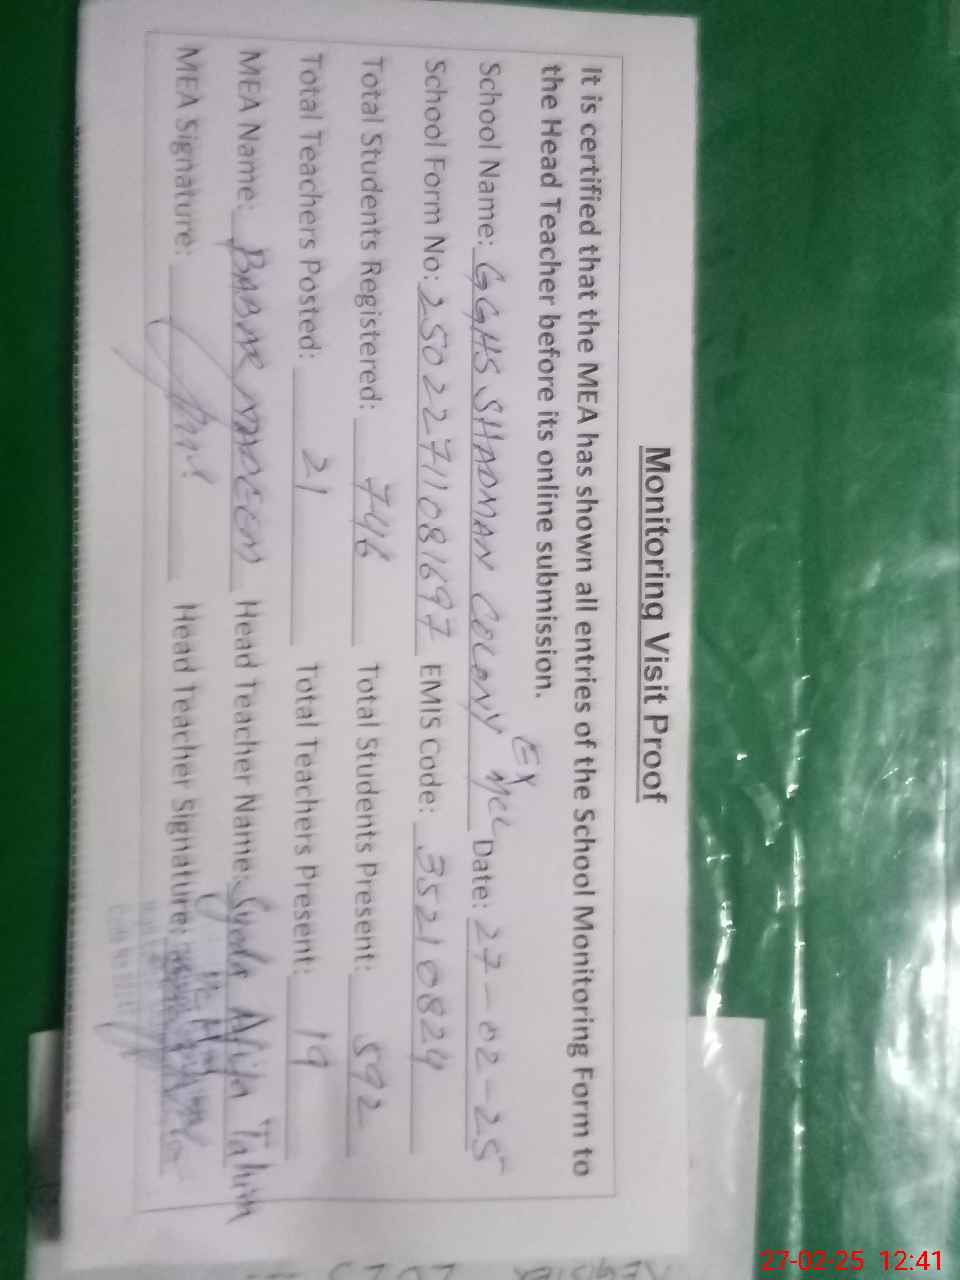 Monitoring Visit Proof
It is certified that the MEA has shown all entries of the School Monitoring Form to
the Head Teacher before its online submission.
School Name: GGHS SHADMAN COLONY EX MCL Date: 27-02-25
School Form No: 25022711081697 EMIS Code: 35210824
Total Students Registered: 746 Total Students Present: 592
Total Teachers Posted: 21 Total Teachers Present: 19
MEA Name: BABAR NADEEM Head Teacher Name: Syeda Aliya Tahira
MEA Signature: Head Teacher Signature:
27-02-25 12:41